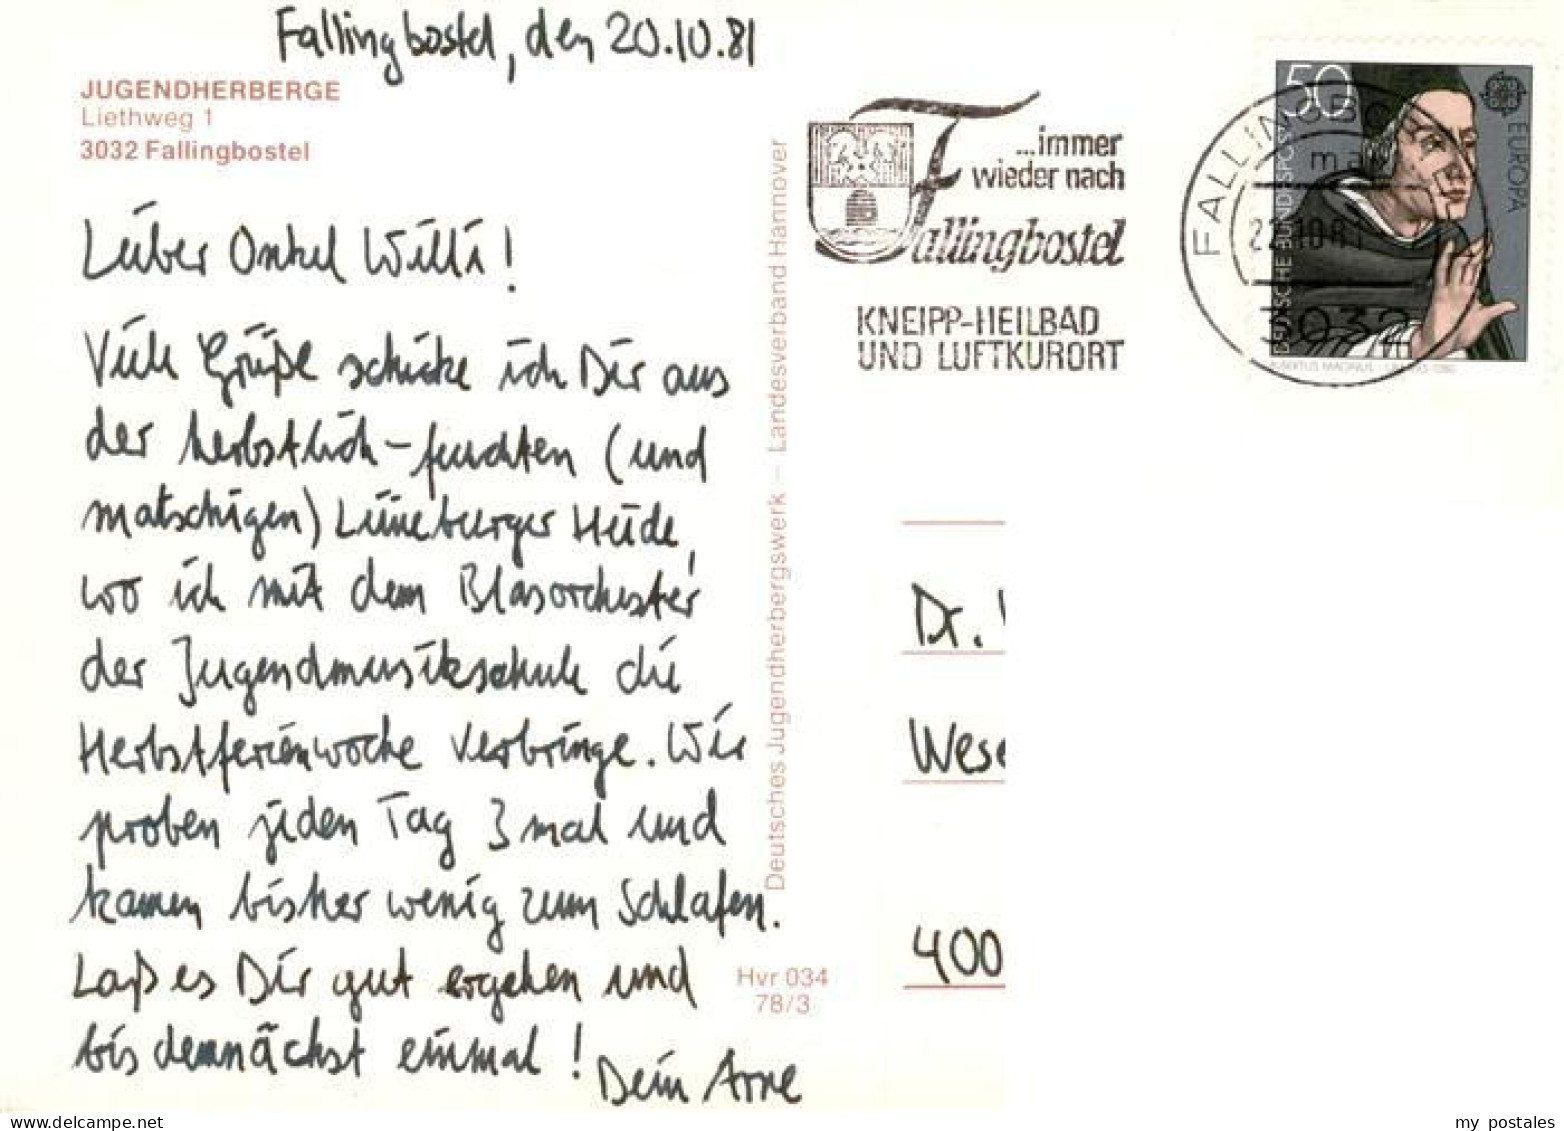 Fallingbostel, den 20.10.81
JUGENDHERBERGE
Liethweg 1
3032 Fallingbostel
Lieber Onkel Willi!
Viele Grüße schicke ich Dir aus
der herbstlich-feuchten (und
matschigen) Lüneburger Heide,
wo ich mit dem Blasorchester
der Jugendmusikschule die
Herbstferienwoche verbringe. Wir
proben jeden Tag 3 mal und
kamen bisher wenig zum Schlafen.
Laß es Dir gut ergehen und
bis demnächst einmal!
Dein Arne
Deutsches Jugendherbergswerk – Landesverband Hannover
Hvr 034
78/3
...immer
wieder nach
Fallingbostel
KNEIPP-HEILBAD
UND LUFTKURORT
FALLINGBOSTEL
22.10.81
3032
50
DEUTSCHE BUNDESPOST
EUROPA
Dr.
Wese
400
my postales